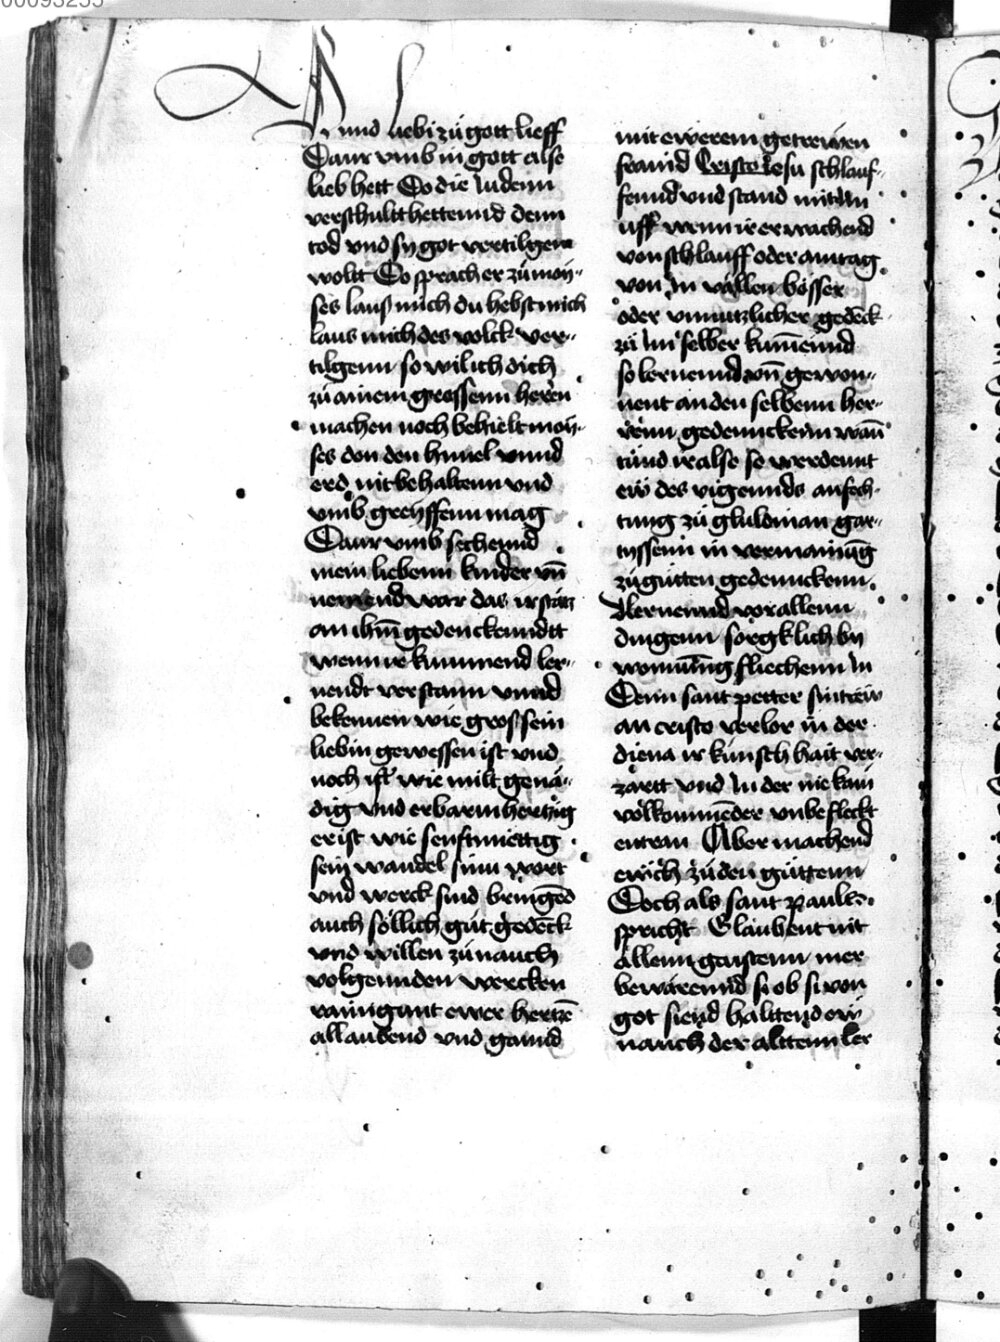 00095255
und liebi zů gott lieff
Daur vmb in gott alse
lieb hett Do die Judenn
verschultt hettennd denn
tod vnd sy got vertilgenn
woltt Do sprach er zů moy-
ses laus mich du hebst mich
laus mich des volck ver-
tilgenn so wil ich dich
zů ainem grossenn heren
machen noch behielt moy-
ses den den himel vnnd
erd nit behaltenn vnd
vmb greyffenn mag
Daur vmb sechennd
mein liebenn kinder vn̄
nemend war das ir stätz
an ihm̄ gedenckenndtt
wenn ir kummend ler-
nendt verstann vnnd
bekennen wie gros sein
liebin gewessen ist vnd
noch ist wie milt genä-
dig vnd erbarmhertzig
er ist wie senfftmettig
sein wandel sinn wort
vnd werck sind bringēd
auch söllich gůt gedēck
vnd willen zů nauch
volgennden wercken
rainigant ewer hertzē
all aubend vnd gannd
mit ewerem getrewen
fraind Cristo Jesu schlauf-
fennd vnd stand mit Im
uff wenn ir erwachend
von schlauff oder am tag
von In vallen bösser
oder vnnutzlicher gedēck
zů Im selber kumēnnd
so lernennd vn̄ gewon-
nent an den selbenn her-
renn gedennckenn wan̄
tünd ir alse so werdennt
ew des vigennds anfech-
tung zů
in vermanūg
zů gůtten gedennckenn.
Lernennd vor allenn
dingenn sorgklich by
wonnūng fliechenn In
Denn sant petter sin trew
an cristo verlor in der
diena ir künsch hait ver-
zartt vnd In der nie kain
volkommēder vnbefleckt
entran Aber machend
ewch zů den gůttenn
Doch als sant paulus
spricht Glaubent nit
allenn gaystenn mer
bewärennd si ob si von
got siend halttend ew
nauch der alttenn ler